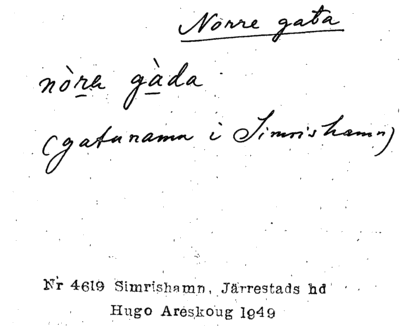 Norre gata
nòra gàda
(gatunamn i Simrishamn)
Nr 4619 Simrishamn, Järrestads hd
Hugo Areskoug 1949